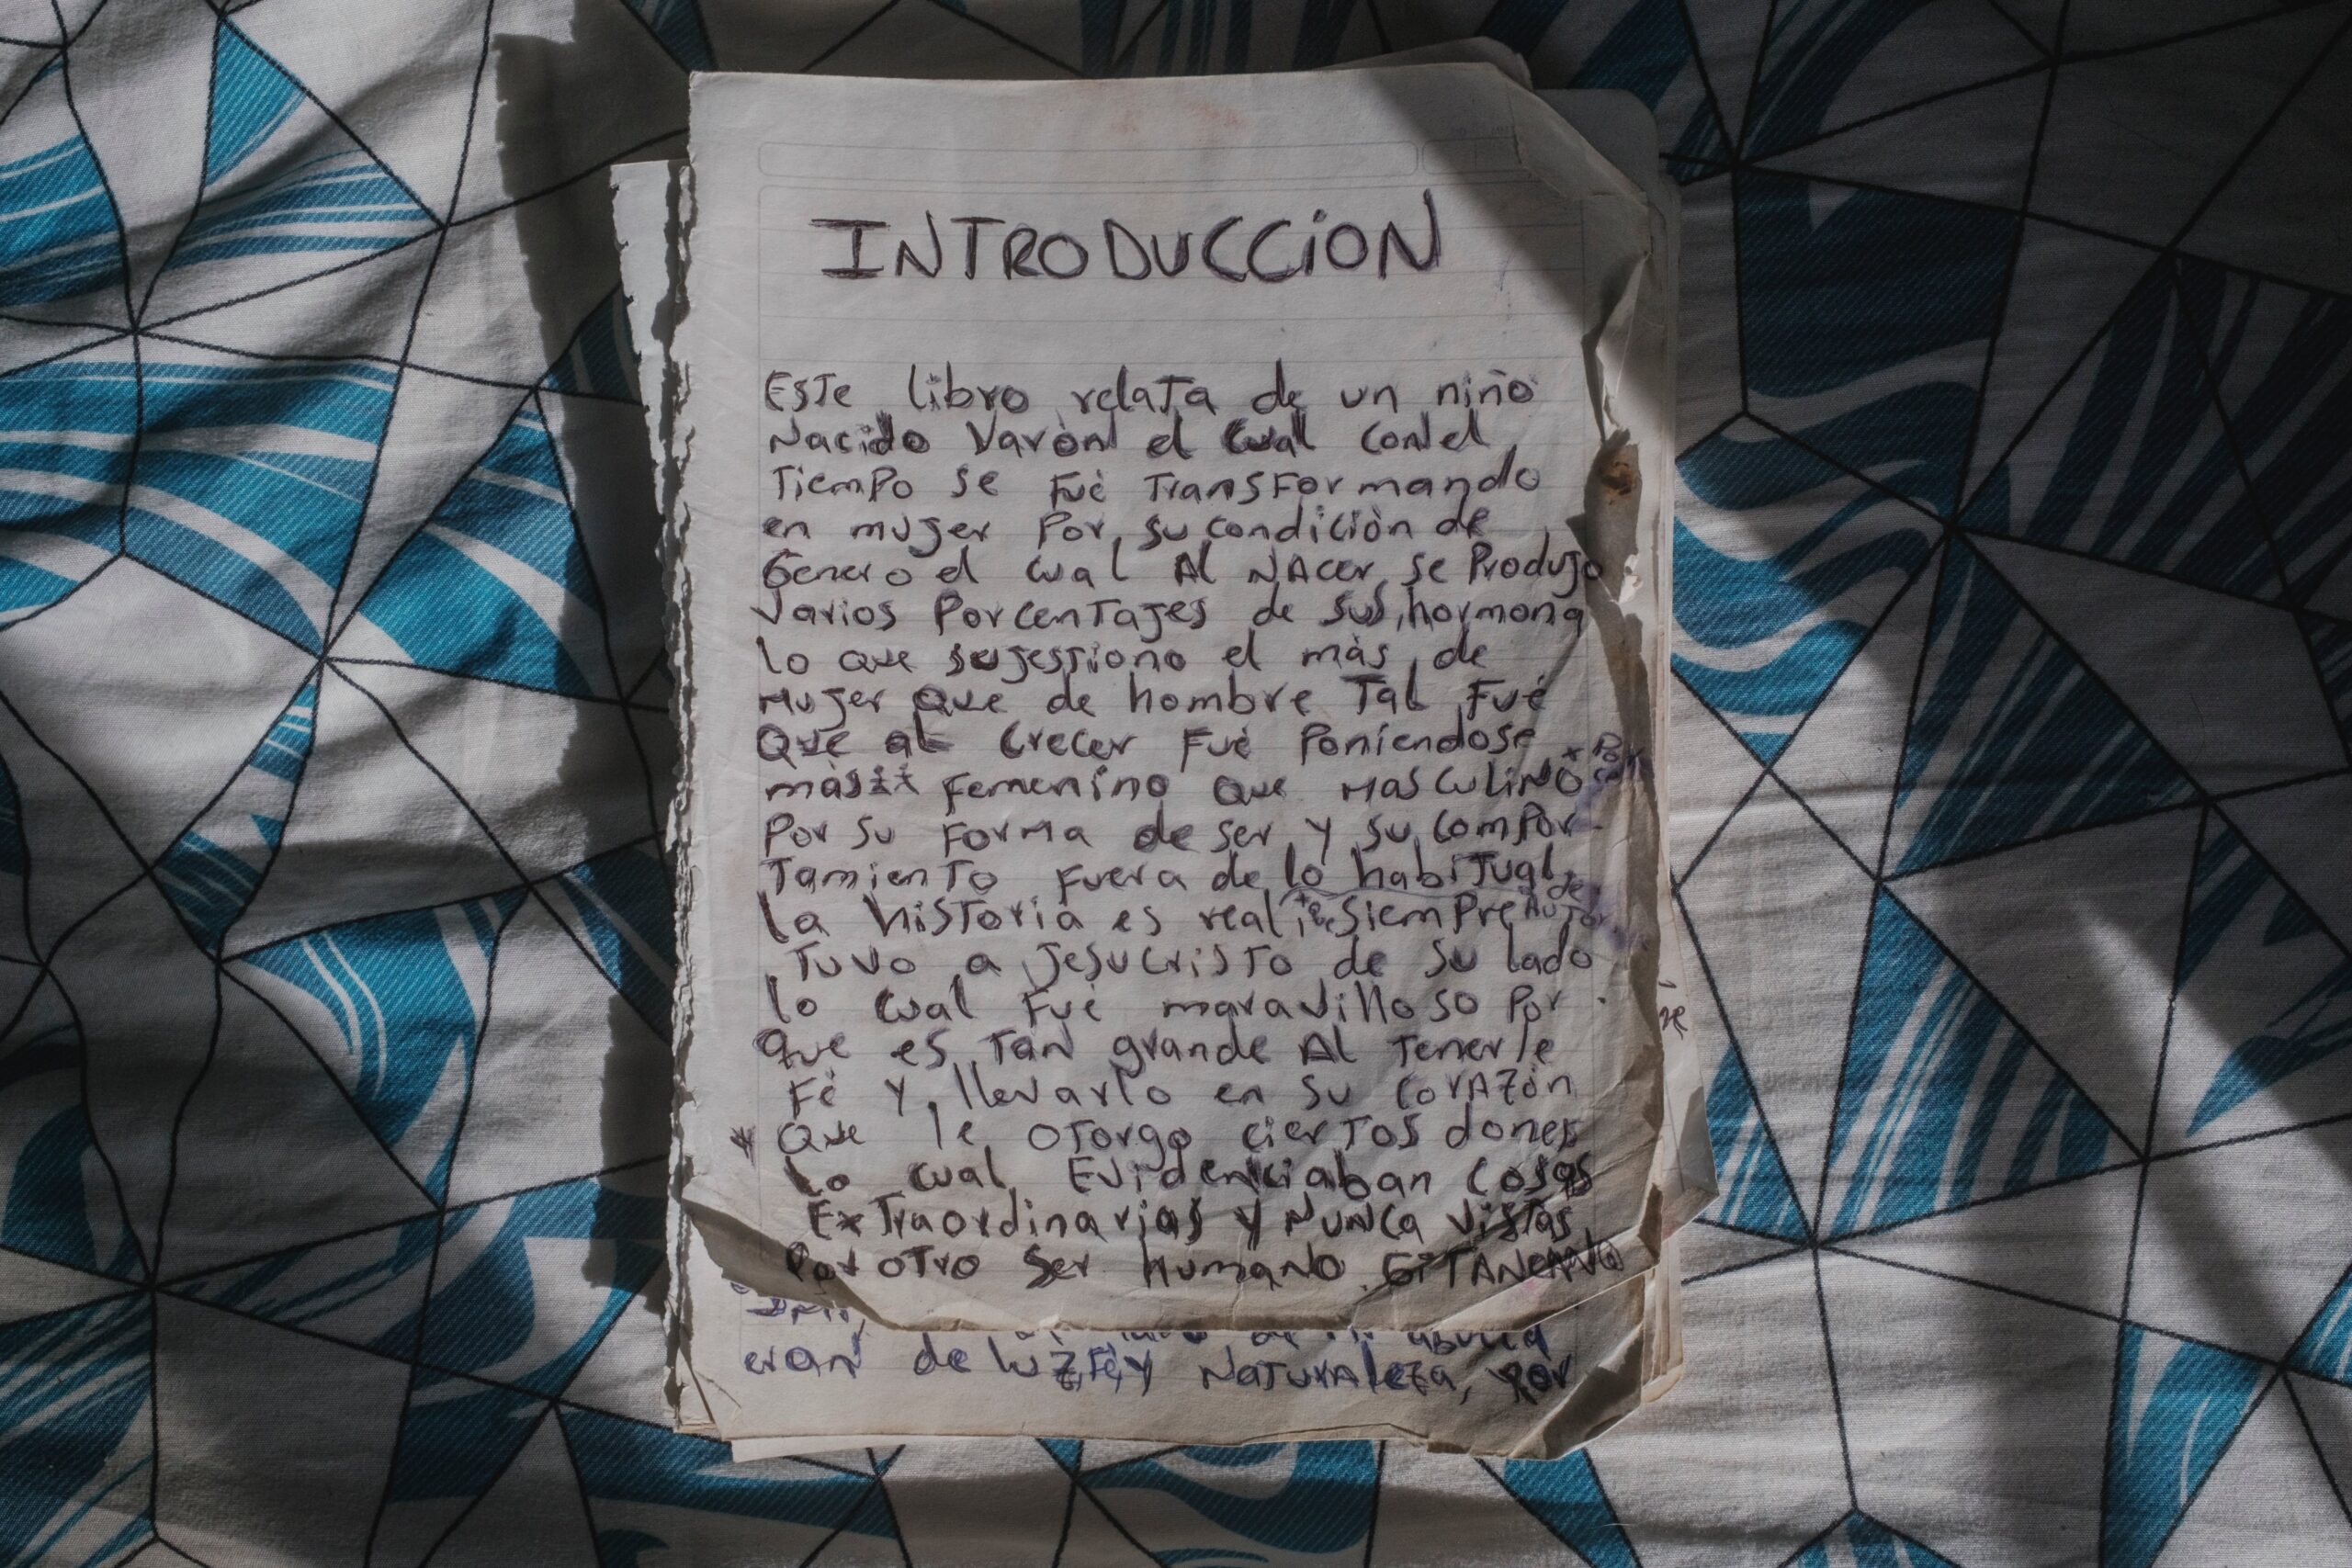 INTRODUCCION
Este libro relata de un niño
Nacido Varòn el cual con el
Tiempo se Fuè Transformando
en mujer Por su condiciòn de
Genero el cual Al NAcer se Produjo
Varios Porcentajes de sus hormona
lo que sugestiono el màs de
Mujer Que de hombre Tal Fuè
Que al Crecer Fuè Poniendose
màs Femenino Que MasculiNo * Por
Por su Forma de ser y su Compor-
Tamiento Fuera de lo habiTual,
La historia es real siempre
Tuvo a Jesucristo de su lado
lo cual Fuè maravilloso Por
Que es Tan grande Al Tenerle
Fè y llevarlo en su CorAzòn
* Que le oTorgo cierTos dones
Lo cual EvidenCiaban Cosas
ExTraordinarias y NuNca visTas
Por oTro Ser HumaNo
eran de luz, Fè, y NaTurAleza, Por